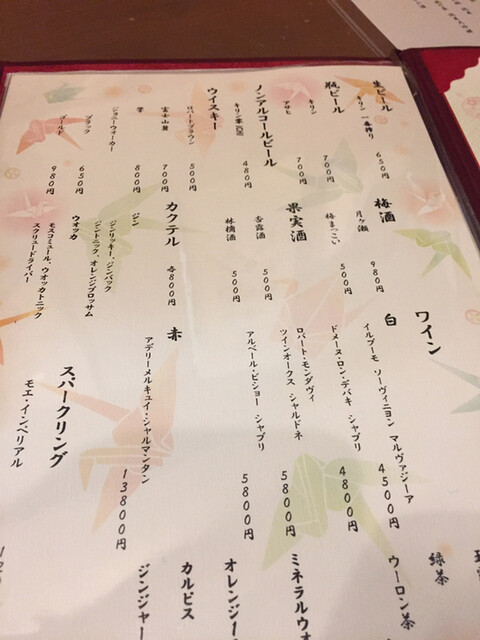 生ビール
キリン 一番搾り 650円
瓶ビール
キリン 700円
アサヒ 700円
ノンアルコールビール
キリン零ICHI 480円
ウイスキー
ロバートブラウン 500円
富士山麓 700円
響 800円
ジョニーウォーカー
ブラック 650円
ゴールド 980円
梅酒
月ヶ瀬 980円
梅まっこい 500円
果実酒
杏露酒 500円
林檎酒 500円
カクテル 各800円
ジン
ジンリッキー、ジンバック
ジントニック、オレンジブロッサム
ウオッカ
モスコミュール、ウオッカトニック
スクリュードライバー
ワイン
白
イルブーモ ソーヴィニヨン マルヴァジーア 4500円
ドメーヌ・ロン・デパキ シャブリ 4800円
ロバート・モンダヴィ
ツインオークス シャルドネ 5800円
アルベール・ビショー シャブリ 5800円
赤
アデリーメルキュイ・シャルマンタン 13800円
スパークリング
モエ・インペリアル
緑茶
ウーロン茶
ミネラルウォ
オレンジ
カルピス
ジンジャー